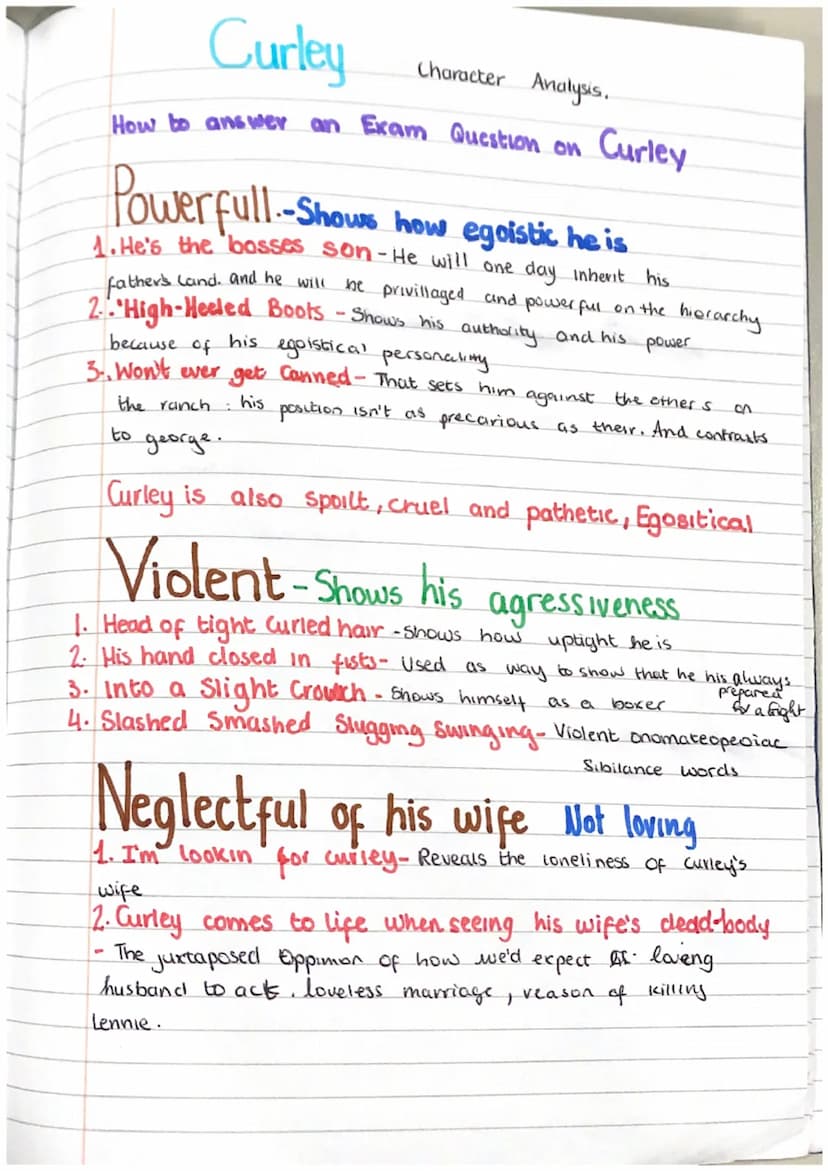 Curley Character Analysis.
How to answer an Exam Question on Curley
Powerfull.-Shows how egoistic he is
1. He's the bosses son - He will one day inherit his
father's land. and he will be privillaged and powerful on the hierarchy
2. 'High-Heeled Boots - Shows his authority and his power
because of his egoistical personality
3. Won't ever get Canned - That sets him against the others on
the ranch : his position isn't as precarious as their. And contrasts
to george.
Curley is also spoilt, cruel and pathetic, Egositical
Violent - Shows his agressiveness
1. Head of tight Curled hair - shows how uptight he is
2. His hand closed in fists - Used as way to show that he his always
prepared
for a fight
3. Into a Slight Crouch - Shows himself as a boxer
4. Slashed Smashed Slugging Swinging - Violent onomateopeoiac
Sibilance words
Neglectful of his wife Not loving
1. I'm lookin for curley - Reveals the loneliness of curley's
wife
2. Curley comes to life when seeing his wife's dead-body
- The juxtaposed of how we'd expect loveing
husband to act. loveless marriage, reason of killing
Lennie.